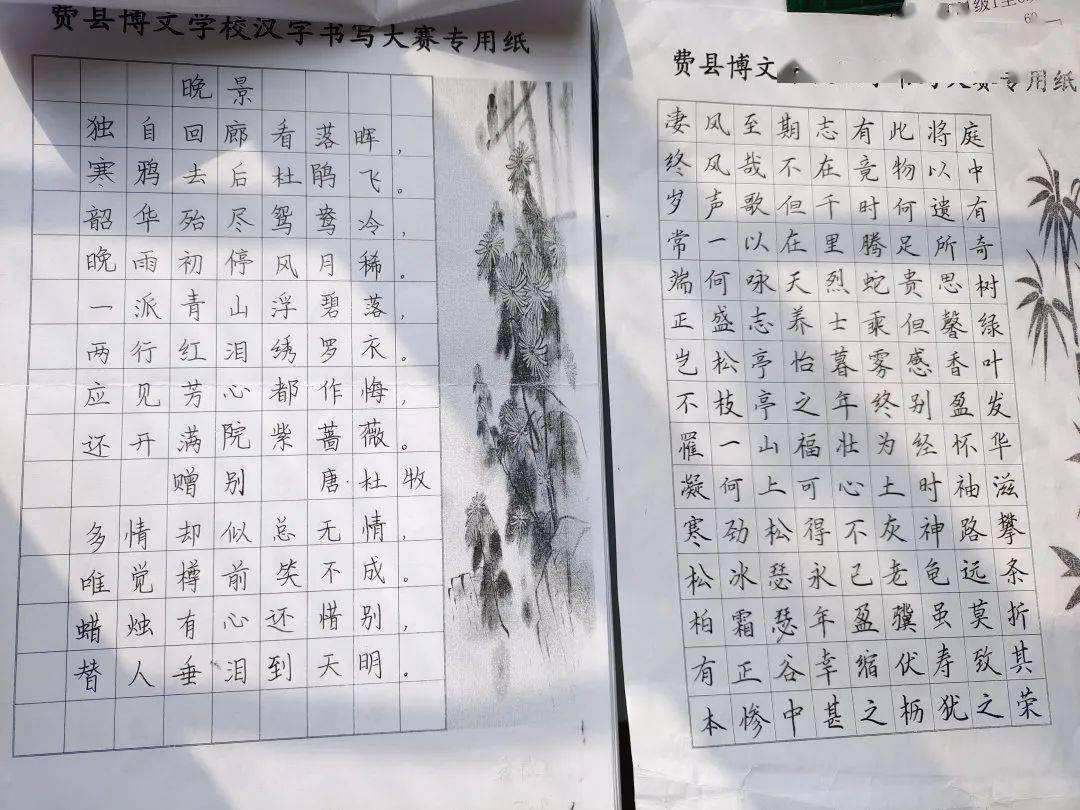 费县博文学校汉字书写大赛专用纸
晚景
独自回廊看落晖，
寒鸦去后杜鹃飞。
韶华殆尽鸳鸯冷，
晚雨初停风月稀。
一派青山浮碧落，
两行红泪绣罗衣。
应见芳心都作悔，
还开满院紫蔷薇。
赠别 唐·杜牧
多情却似总无情，
唯觉樽前笑不成。
蜡烛有心还惜别，
替人垂泪到天明。
费县博文 大赛专用纸
庭中有奇树绿叶发华滋攀条折其荣
将以遗所思馨香盈怀袖路远莫致之
此物何足贵但感别经时神龟虽寿犹
有竟时腾蛇乘雾终为土灰老骥伏枥
志在千里烈士暮年壮心不已盈缩之
期不但在天养怡之福可得永年幸甚
至哉歌以咏志亭亭山上松瑟瑟谷中
风风声一何盛松枝一何劲冰霜正惨
凄终岁常端正岂不罹凝寒松柏有本